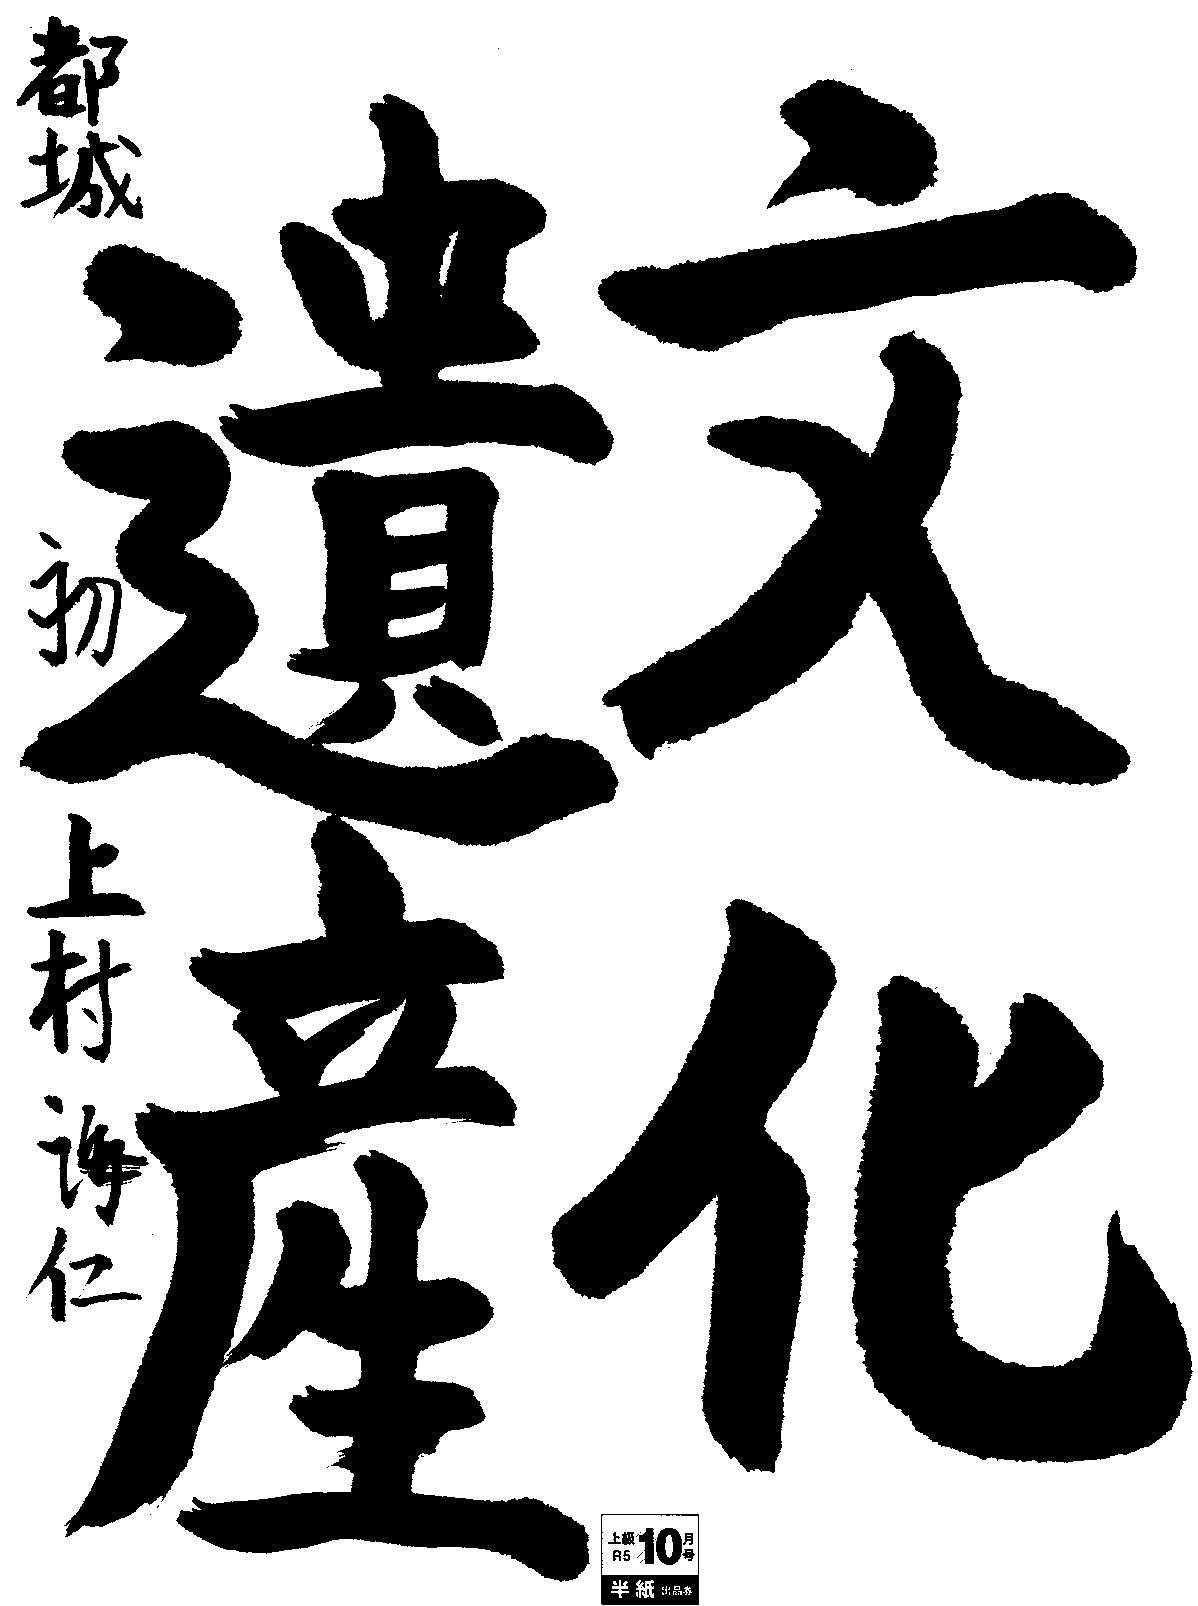 文化
遺産
都城 初 上村 海仁
上級 10月号
R5
半紙 出品券